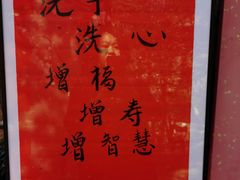 洗手洗心
增福增寿
增智慧